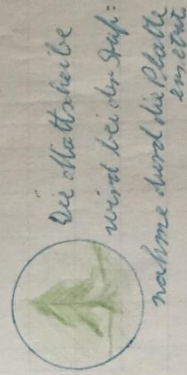 Die Mattscheibe
wird bei der Auf=
nahme durch die Platte
ersetzt